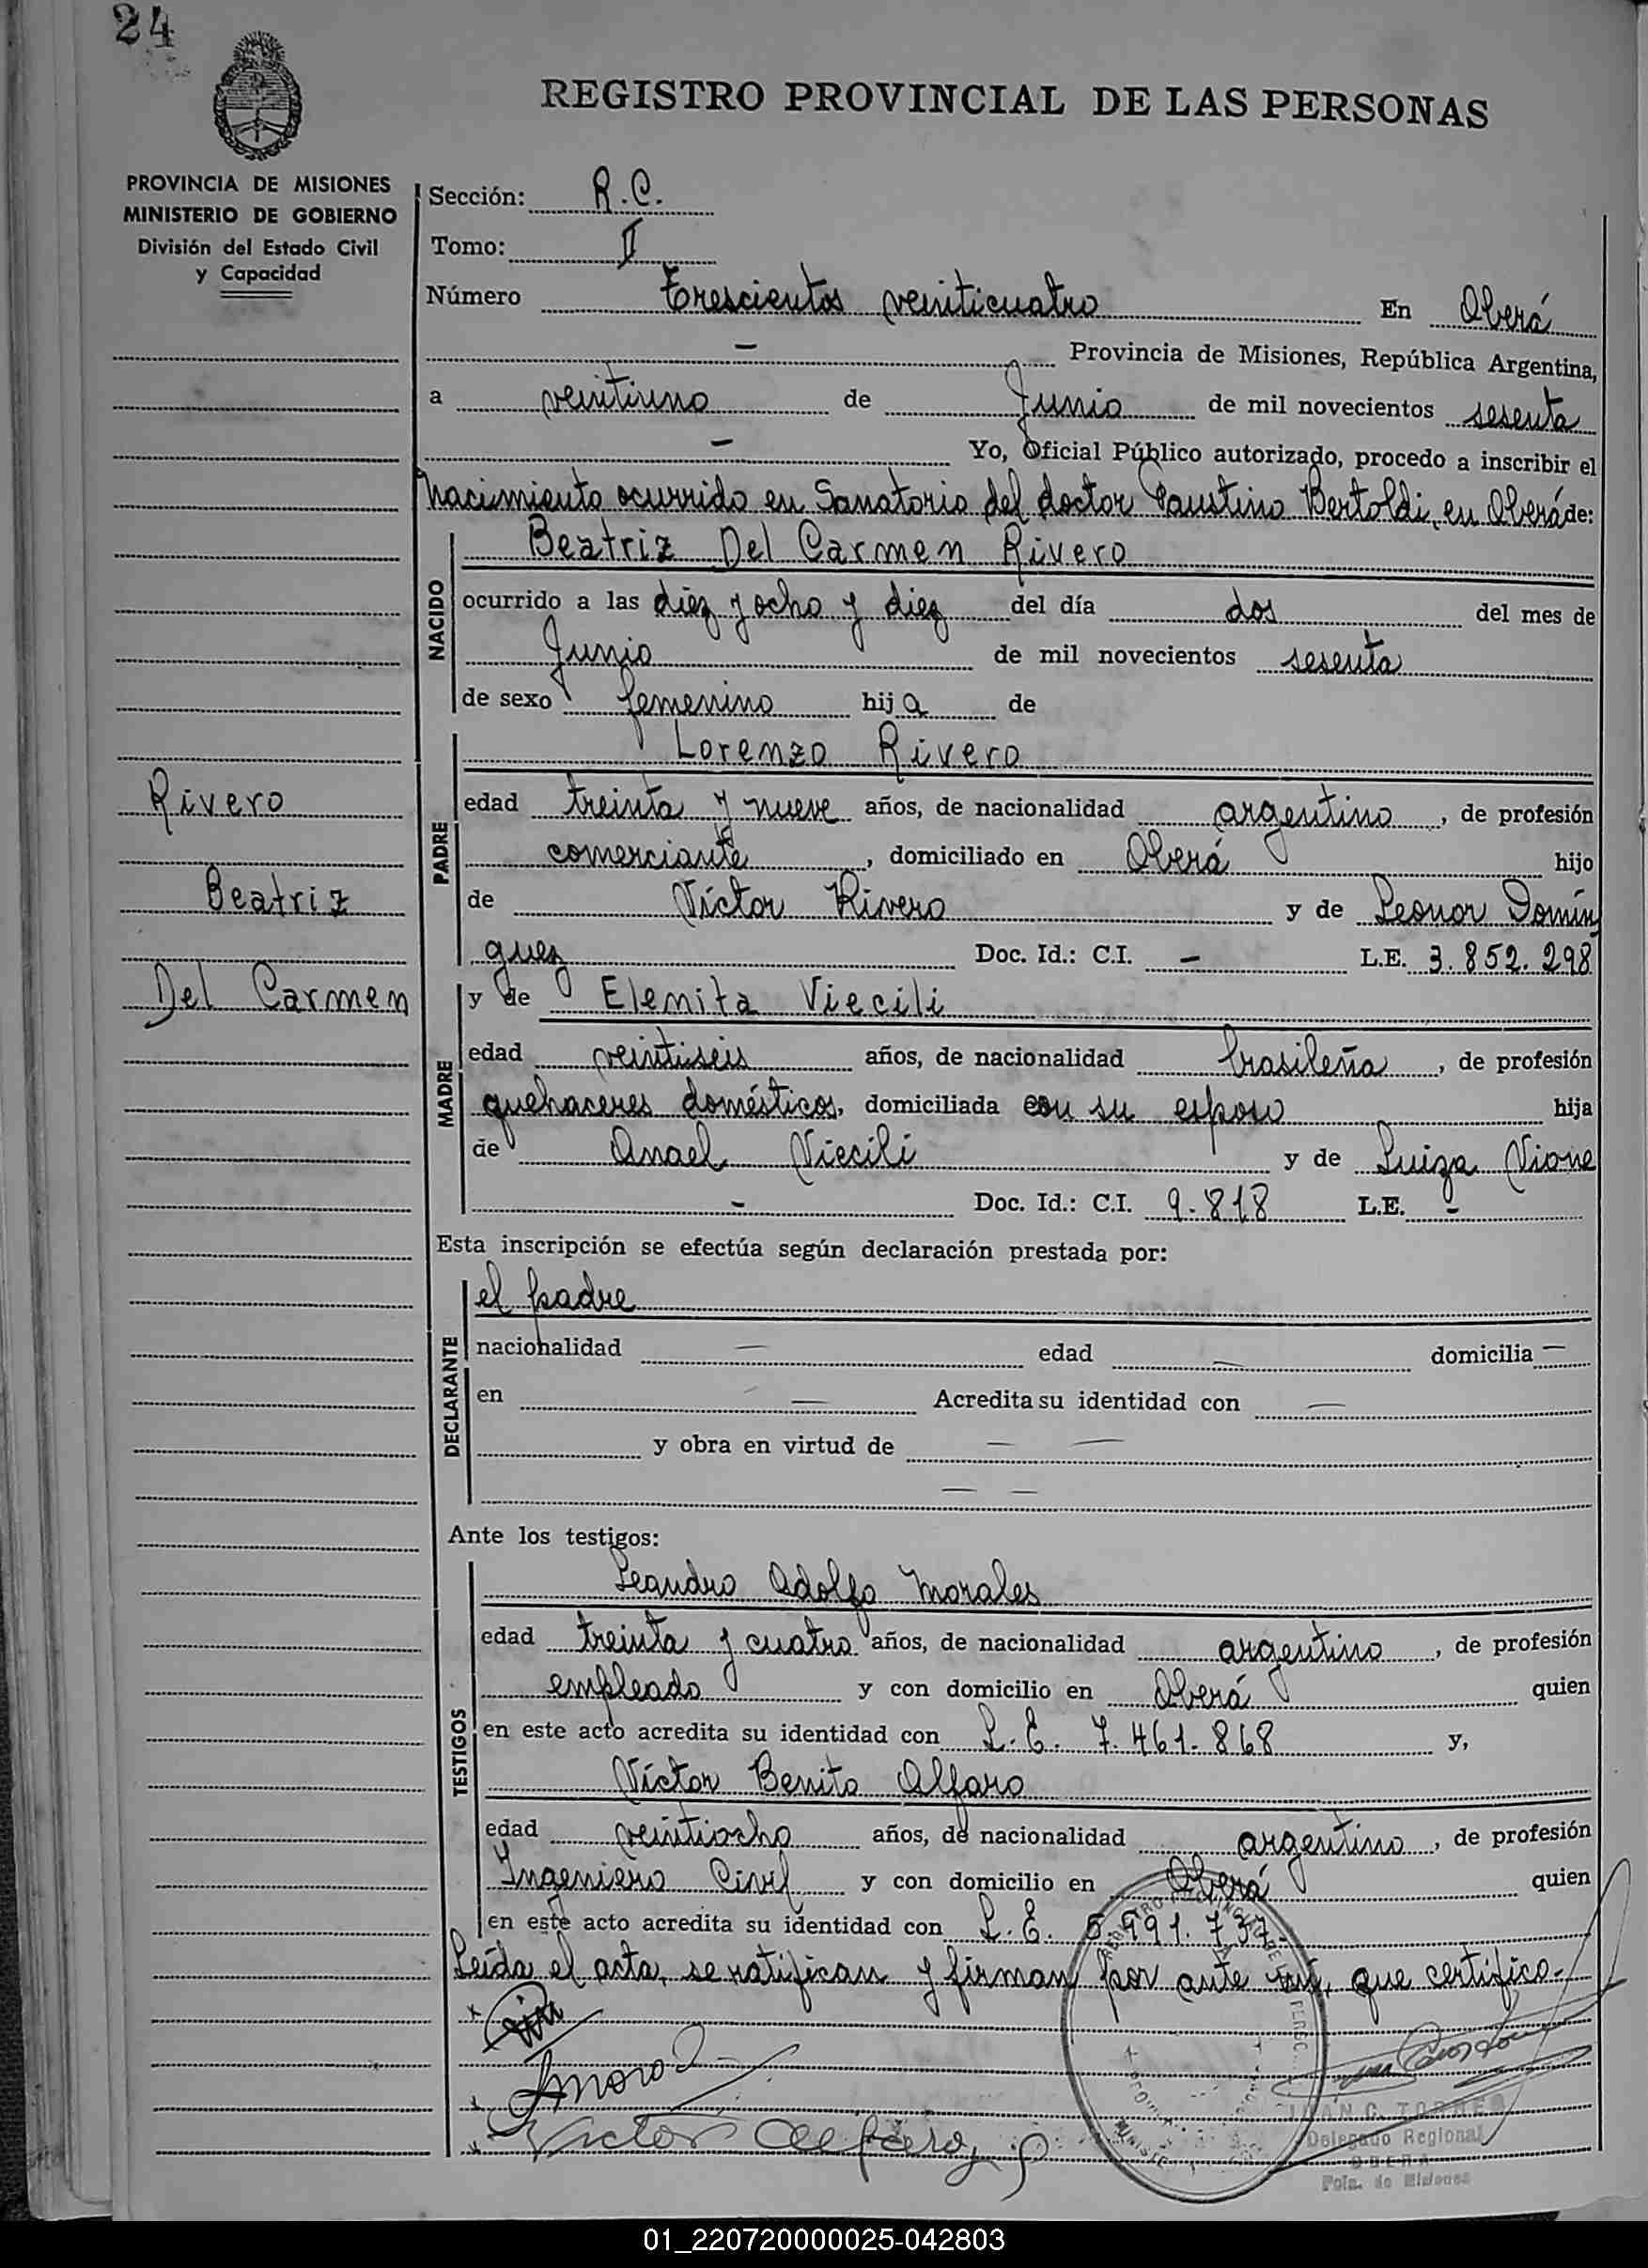 24
REGISTRO PROVINCIAL DE LAS PERSONAS
PROVINCIA DE MISIONES
MINISTERIO DE GOBIERNO
División del Estado Civil
y Capacidad
Sección: R.C.
Tomo: II
Número Trescientos veinticuatro En Oberá
- Provincia de Misiones, República Argentina,
a veintiuno de Junio de mil novecientos sesenta
- Yo, Oficial Público autorizado, procedo a inscribir el
Nacimiento ocurrido en Sanatorio del doctor Faustino Bertoldi, en Oberá de:
NACIDO
Beatriz Del Carmen Rivero
ocurrido a las diez y ocho y diez del día dos del mes de
Junio de mil novecientos sesenta
de sexo femenino hija de
PADRE
Lorenzo Rivero
Rivero
edad treinta y nueve años, de nacionalidad argentino, de profesión
comerciante, domiciliado en Oberá hijo
Beatriz
de Víctor Rivero y de Leonor Domín
guez Doc. Id.: C.I. - L.E. 3.852.298
Del Carmen
MADRE
y de Elenita Viecili
edad veintiseis años, de nacionalidad brasileña, de profesión
quehaceres domésticos, domiciliada con su esposo hija
de Anael Viecili y de Luiza Vione
- Doc. Id.: C.I. 9.818 L.E. -
Esta inscripción se efectúa según declaración prestada por:
DECLARANTE
el padre
nacionalidad — edad — domicilia —
en — Acredita su identidad con —
y obra en virtud de — —
— —
Ante los testigos:
TESTIGOS
Leandro Adolfo Morales
edad treinta y cuatro años, de nacionalidad argentino, de profesión
empleado y con domicilio en Oberá quien
en este acto acredita su identidad con L.E. 7.461.868 y,
Víctor Benito Alfaro
edad veintiocho años, de nacionalidad argentino, de profesión
Ingeniero Civil y con domicilio en Oberá quien
en este acto acredita su identidad con L.E. 5.991.737-
Leída el acta, se ratifican y firman por ante mí, que certifico.-
Victor Alfaro
JUAN C. TORRES
Delegado Regional
OBERA
Pcia. de Misiones
01_220720000025-042803